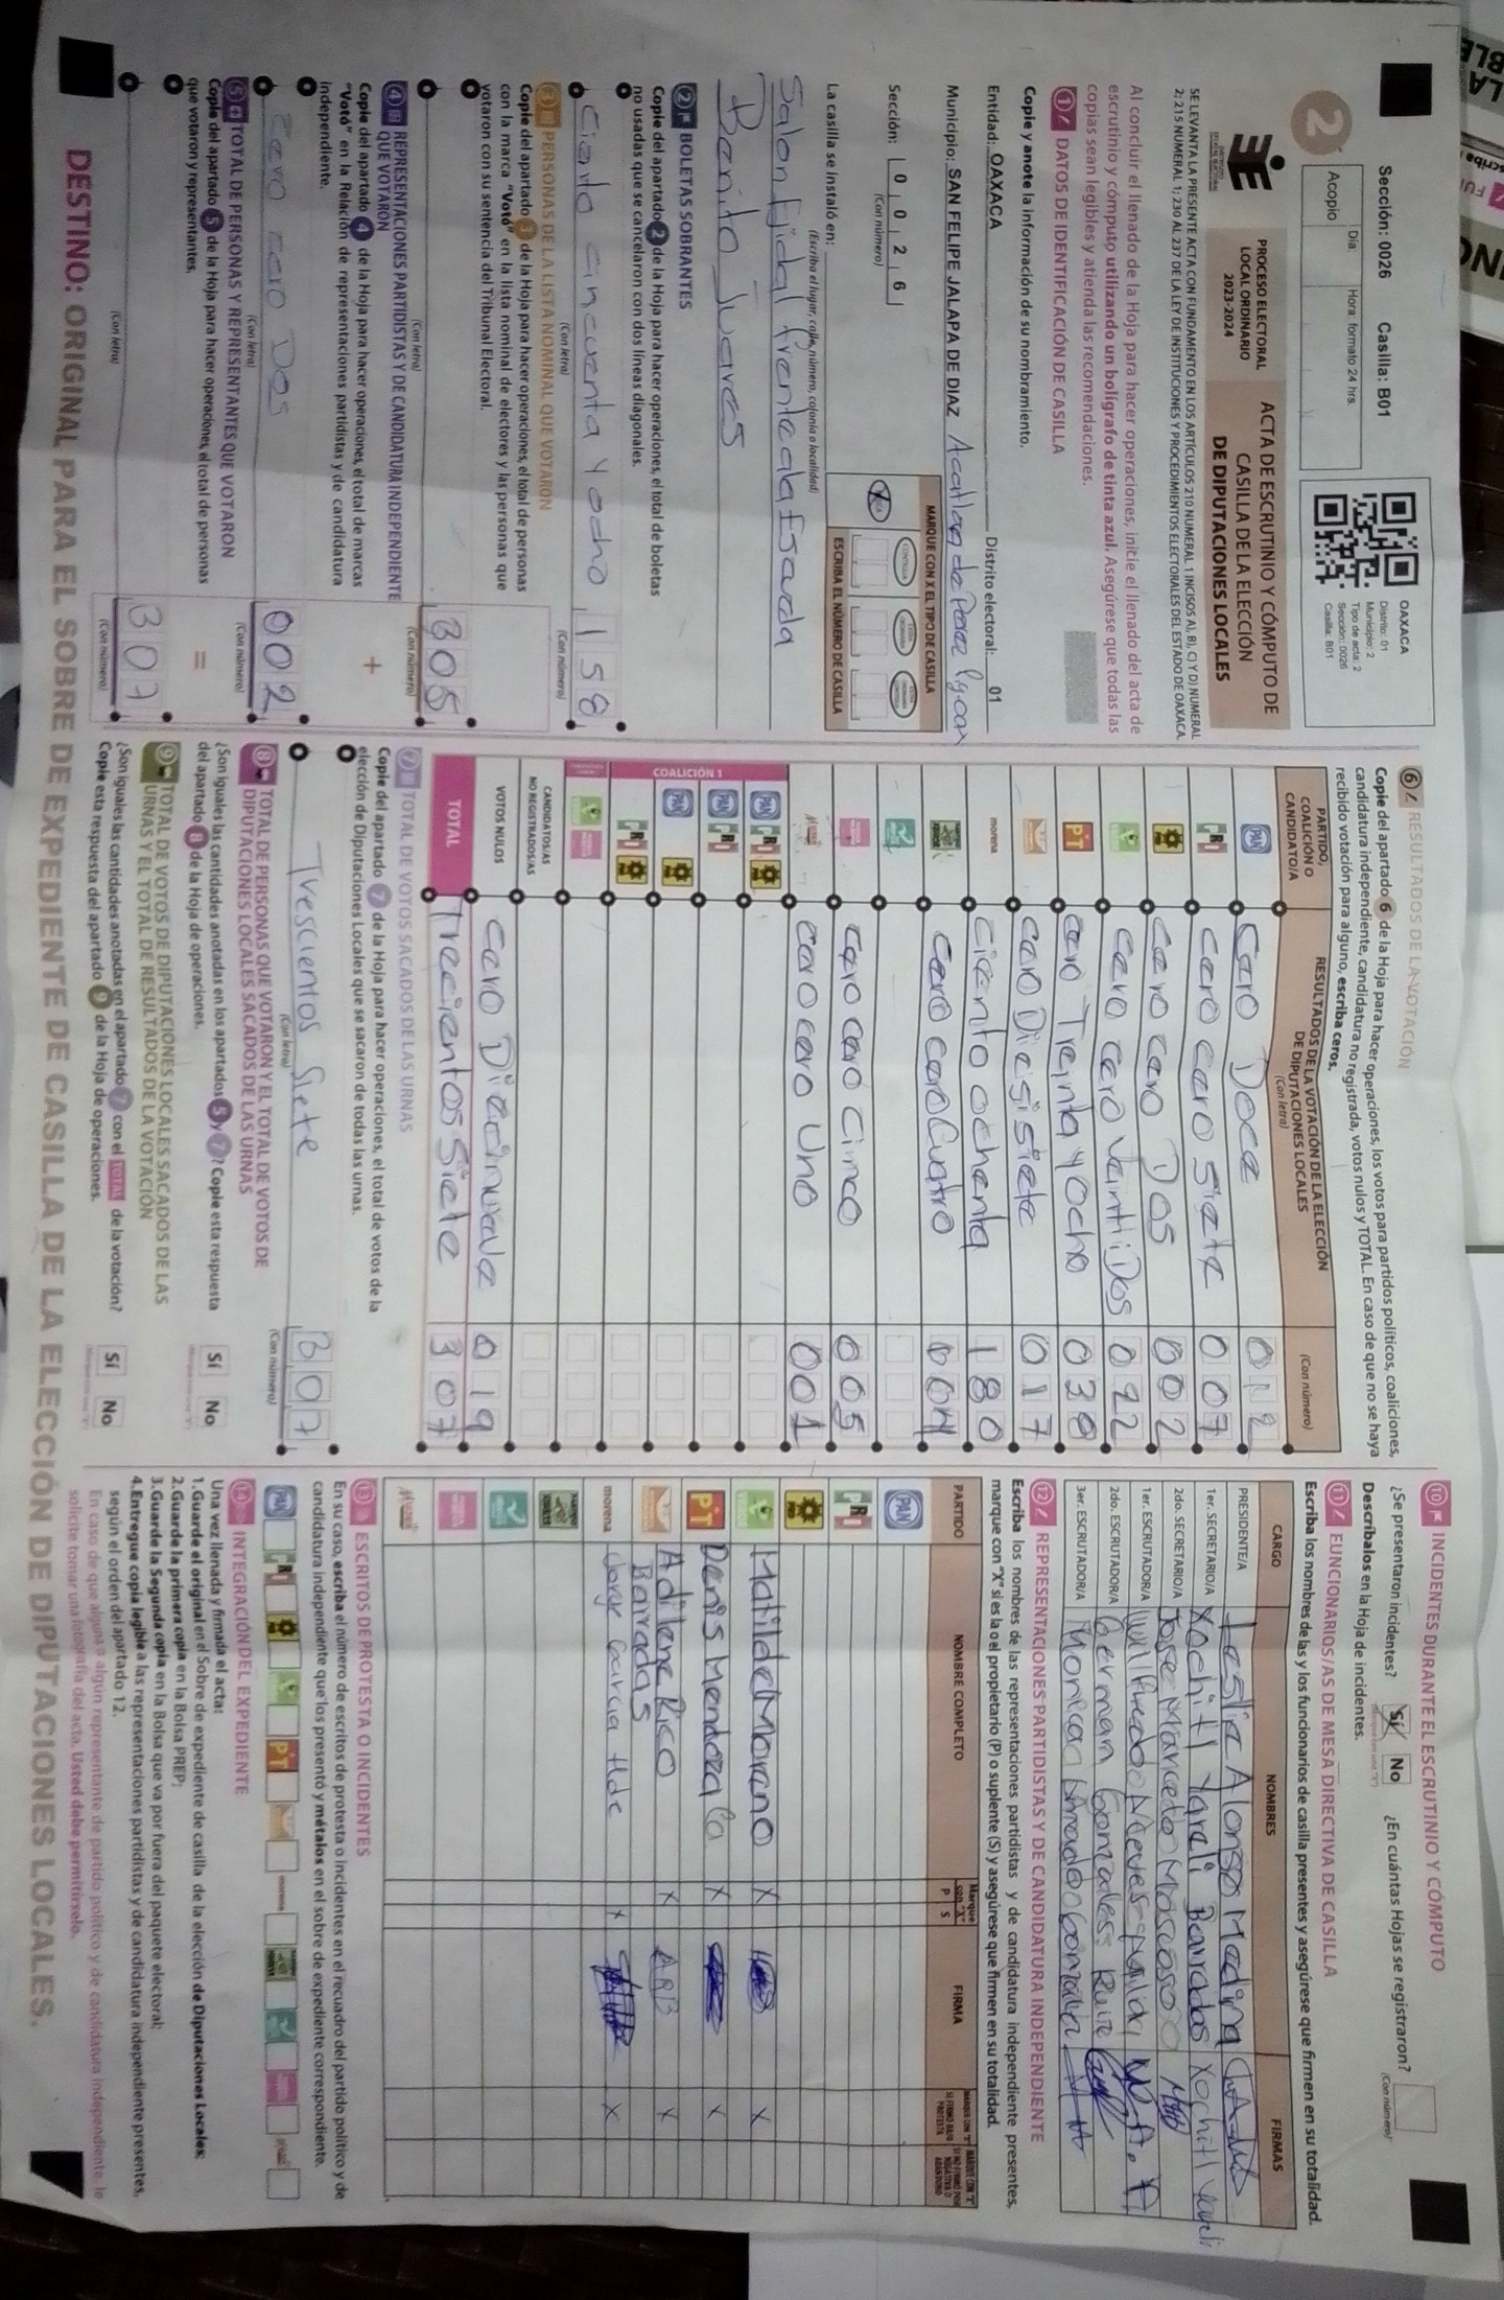 Sección: 0026 Casilla: B01
Día: Hora: formato 24 hrs.
Acopio
OAXACA
Distrito: 01
Municipio: 2
Tipo de acta: 2
Sección: 0026
Casilla: B01
2
PROCESO ELECTORAL
LOCAL ORDINARIO
2023-2024
ACTA DE ESCRUTINIO Y CÓMPUTO DE
CASILLA DE LA ELECCIÓN
DE DIPUTACIONES LOCALES
SE LEVANTA LA PRESENTE ACTA CON FUNDAMENTO EN LOS ARTÍCULOS 210 NUMERAL 1 INCISOS A), B), C) Y D) NUMERAL
2; 215 NUMERAL 1; 230 AL 237 DE LA LEY DE INSTITUCIONES Y PROCEDIMIENTOS ELECTORALES DEL ESTADO DE OAXACA.
Al concluir el llenado de la Hoja para hacer operaciones, inicie el llenado del acta de
escrutinio y cómputo utilizando un bolígrafo de tinta azul. Asegúrese que todas las
copias sean legibles y atienda las recomendaciones.
1 DATOS DE IDENTIFICACIÓN DE CASILLA
Copie y anote la información de su nombramiento.
Entidad: OAXACA Distrito electoral: 01
Municipio: SAN FELIPE JALAPA DE DIAZ
Sección: 0 0 2 6
(Con número)
MARQUE CON X EL TIPO DE CASILLA
ESCRIBA EL NÚMERO DE CASILLA
La casilla se instaló en:
(Escriba el lugar, calle, número, colonia o localidad)
Salon Ejidal frente ala Escuela
Benito Juares
2 BOLETAS SOBRANTES
Copie del apartado 2 de la Hoja para hacer operaciones, el total de boletas
no usadas que se cancelaron con dos líneas diagonales.
Ciento cincuenta y ocho 158
(Con letra) (Con número)
3 PERSONAS DE LA LISTA NOMINAL QUE VOTARON
Copie del apartado 3 de la Hoja para hacer operaciones, el total de personas
con la marca "Votó" en la lista nominal de electores y las personas que
votaron con su sentencia del Tribunal Electoral.
305
(Con letra) (Con número)
4 REPRESENTACIONES PARTIDISTAS Y DE CANDIDATURA INDEPENDIENTE
QUE VOTARON
Copie del apartado 4 de la Hoja para hacer operaciones, el total de marcas
"Votó" en la Relación de representaciones partidistas y de candidatura
independiente.
+
cero cero Dos 002
(Con letra) (Con número)
5 TOTAL DE PERSONAS Y REPRESENTANTES QUE VOTARON
Copie del apartado 5 de la Hoja para hacer operaciones, el total de personas
que votaron y representantes.
=
307
(Con letra) (Con número)
6 RESULTADOS DE LA VOTACIÓN
Copie del apartado 6 de la Hoja para hacer operaciones, los votos para partidos políticos, coaliciones,
candidatura independiente, candidatura no registrada, votos nulos y TOTAL. En caso de que no se haya
recibido votación para alguno, escriba ceros.
PARTIDO, COALICIÓN O CANDIDATO/A
RESULTADOS DE LA VOTACIÓN DE LA ELECCIÓN
DE DIPUTACIONES LOCALES
(Con letra) (Con número)
PAN Cero Doce 012
PRI Cero cero Siete 007
PRD Cero cero Dos 002
cero cero Veintidos 022
PT cero Treinta y Ocho 038
cero Diesisiete 017
morena Ciento ochenta 180
cero cero Cuatro 004
cero cero cinco 005
cero cero Uno 001
COALICIÓN 1
PAN PRI PRD
PAN PRI
PAN PRD
PRI PRD
CANDIDATOS/AS
NO REGISTRADOS/AS
VOTOS NULOS cero Diecinueve 019
TOTAL Trecientos Siete 307
7 TOTAL DE VOTOS SACADOS DE LAS URNAS
Copie del apartado 7 de la Hoja para hacer operaciones, el total de votos de la
elección de Diputaciones Locales que se sacaron de todas las urnas.
Trescientos Siete 307
(Con letra) (Con número)
8 TOTAL DE PERSONAS QUE VOTARON Y EL TOTAL DE VOTOS DE
DIPUTACIONES LOCALES SACADOS DE LAS URNAS
¿Son iguales las cantidades anotadas en los apartados 5 y 7? Copie esta respuesta
del apartado 8 de la Hoja de operaciones.
Sí No
9 TOTAL DE VOTOS DE DIPUTACIONES LOCALES SACADOS DE LAS
URNAS Y EL TOTAL DE RESULTADOS DE LA VOTACIÓN
¿Son iguales las cantidades anotadas en el apartado 7 con el TOTAL de la votación?
Copie esta respuesta del apartado 9 de la Hoja de operaciones.
Sí No
10 INCIDENTES DURANTE EL ESCRUTINIO Y CÓMPUTO
¿Se presentaron incidentes? Sí No ¿En cuántas Hojas se registraron?
(Con número)
Descríbalos en la Hoja de incidentes.
11 FUNCIONARIOS/AS DE MESA DIRECTIVA DE CASILLA
Escriba los nombres de las y los funcionarios de casilla presentes y asegúrese que firmen en su totalidad.
CARGO NOMBRES FIRMAS
PRESIDENTE/A Leslie Alonso Medina
1er. SECRETARIO/A Xochitl Yareli Barradas Xochitl Yareli
2do. SECRETARIO/A Jose Marcedo Moscoso
1er. ESCRUTADOR/A Wilfredo Nieves
2do. ESCRUTADOR/A German Gonzales
3er. ESCRUTADOR/A Monica Amado Gonzalez
12 REPRESENTACIONES PARTIDISTAS Y DE CANDIDATURA INDEPENDIENTE
Escriba los nombres de las representaciones partidistas y de candidatura independiente presentes,
marque con "X" si es la o el propietario (P) o suplente (S) y asegúrese que firmen en su totalidad.
PARTIDO NOMBRE COMPLETO Marque con "X" P S FIRMA
PAN
PRI
PRD
Matilde Moreno X X
PT Denis Mendoza X X
Adilene Rico Barradas X ARB X
morena Jorge Garcia Hdz X X
13 ESCRITOS DE PROTESTA O INCIDENTES
En su caso, escriba el número de escritos de protesta o incidentes en el recuadro del partido político y de
candidatura independiente que los presentó y métalos en el sobre de expediente correspondiente.
PAN PRI PRD PT morena
14 INTEGRACIÓN DEL EXPEDIENTE
Una vez llenada y firmada el acta:
1. Guarde el original en el Sobre de expediente de casilla de la elección de Diputaciones Locales;
2. Guarde la primera copia en la Bolsa PREP;
3. Guarde la Segunda copia en la Bolsa que va por fuera del paquete electoral;
4. Entregue copia legible a las representaciones partidistas y de candidatura independiente presentes,
según el orden del apartado 12.
En caso de que alguna o algún representante de partido político y de candidatura independiente, le
solicite tomar una fotografía del acta, Usted debe permitírselo.
DESTINO: ORIGINAL PARA EL SOBRE DE EXPEDIENTE DE CASILLA DE LA ELECCIÓN DE DIPUTACIONES LOCALES.